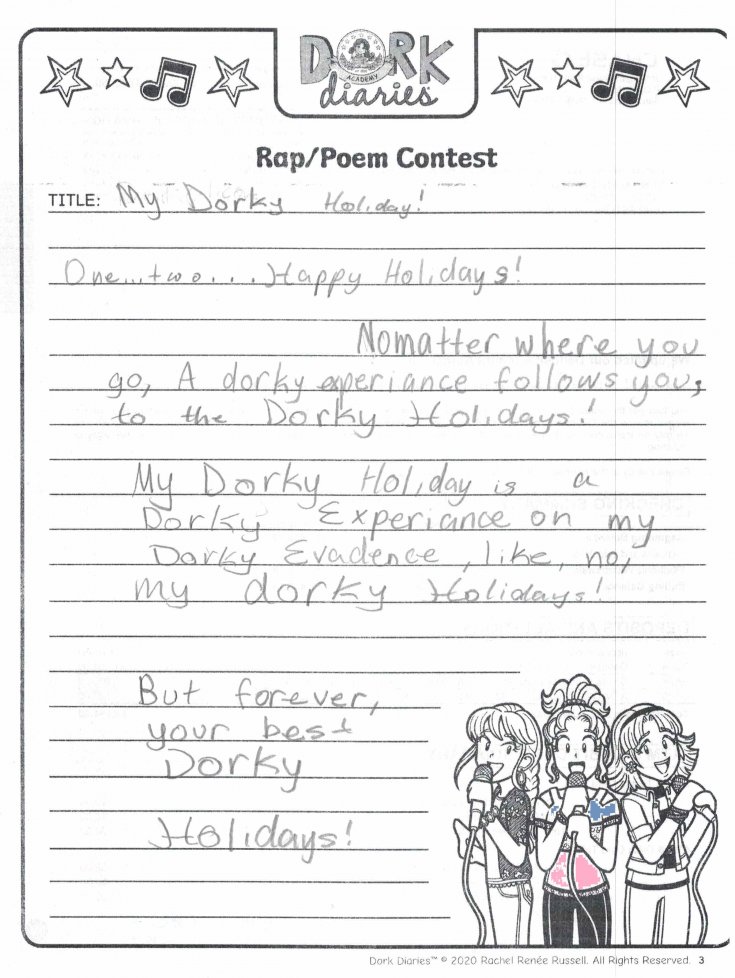 DORK
ACADEMY
diaries
Rap/Poem Contest
TITLE: My Dorky Holiday!
One...two....Happy Holidays!
Nomatter where you
go, A dorky experiance follows you,
to the Dorky Holidays!
My Dorky Holiday is a
Dorky Experiance on my
Dorky Evadence, like, no,
my dorky Holidays!
But forever,
your best
Dorky
Holidays!
Dork Diaries™ © 2020 Rachel Renée Russell. All Rights Reserved. 3